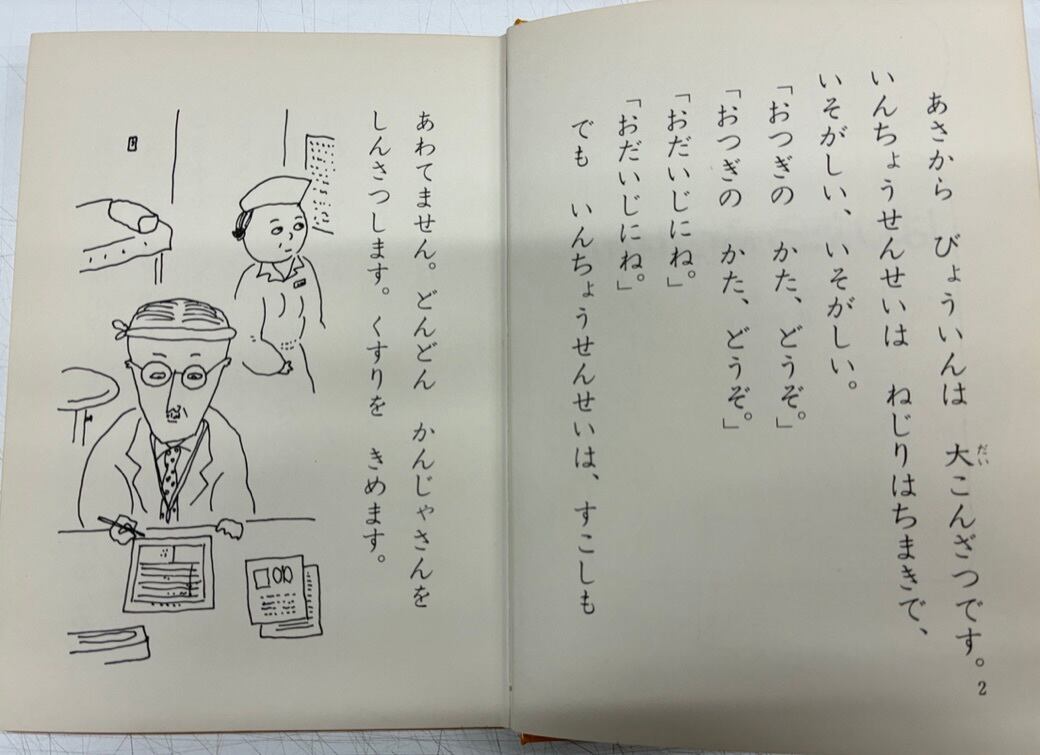 あさから　びょういんは　大こんざつです。
だい
いんちょうせんせいは　ねじりはちまきで、
いそがしい、いそがしい。
「おつぎの　かた、どうぞ。」
「おつぎの　かた、どうぞ。」
「おだいじにね。」
「おだいじにね。」
でも　いんちょうせんせいは、すこしも
2
あわてません。どんどん　かんじゃさんを
しんさつします。くすりを　きめます。